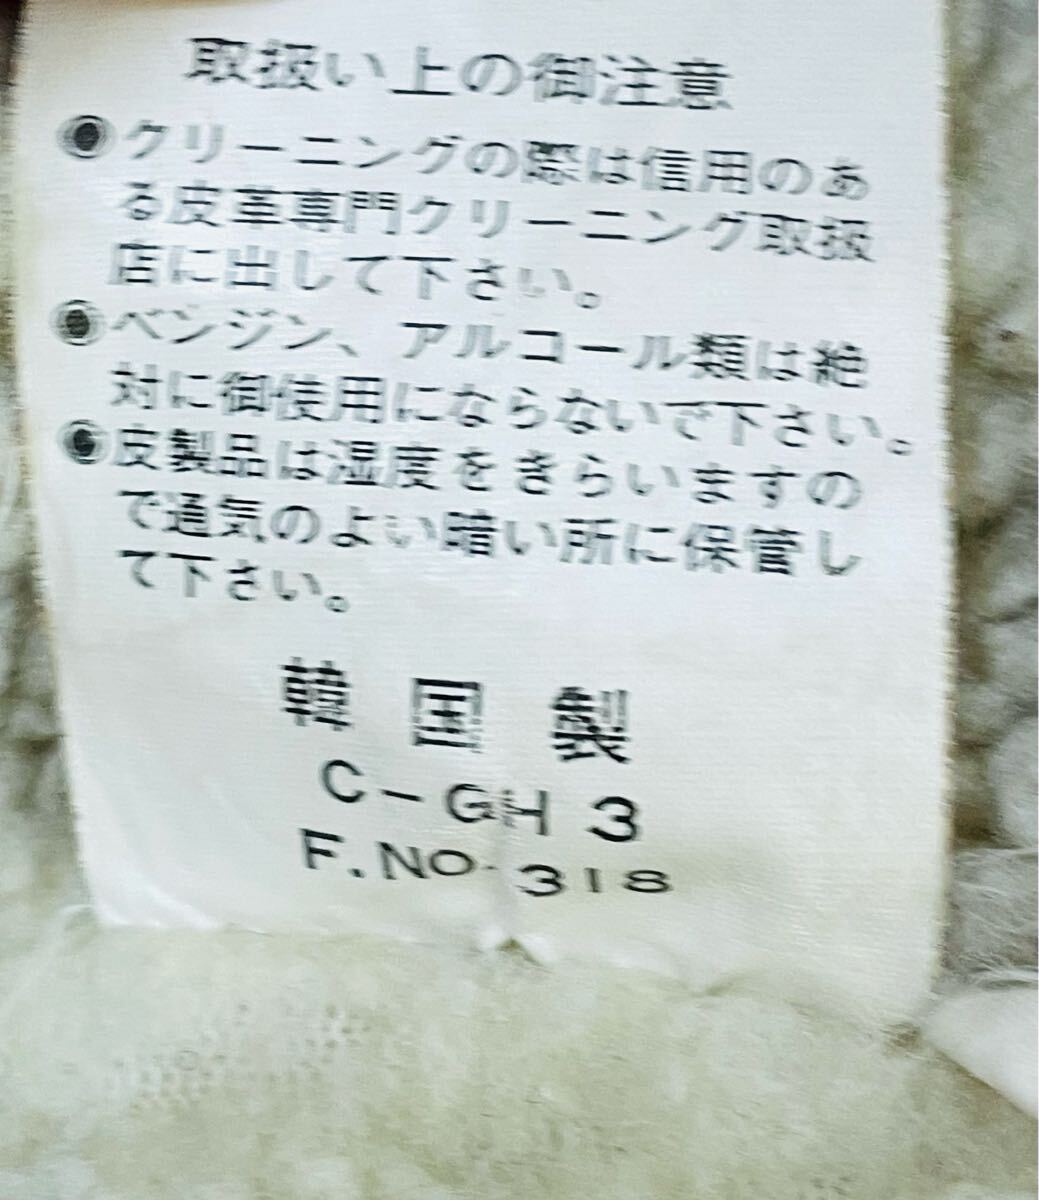 取扱い上の御注意
●クリーニングの際は信用のあ
る皮革専門クリーニング取扱
店に出して下さい。
●ベンジン、アルコール類は絶
対に御使用にならないで下さい。
●皮製品は湿度をきらいますの
で通気のよい暗い所に保管し
て下さい。
韓国製
C-GH3
F.NO.318